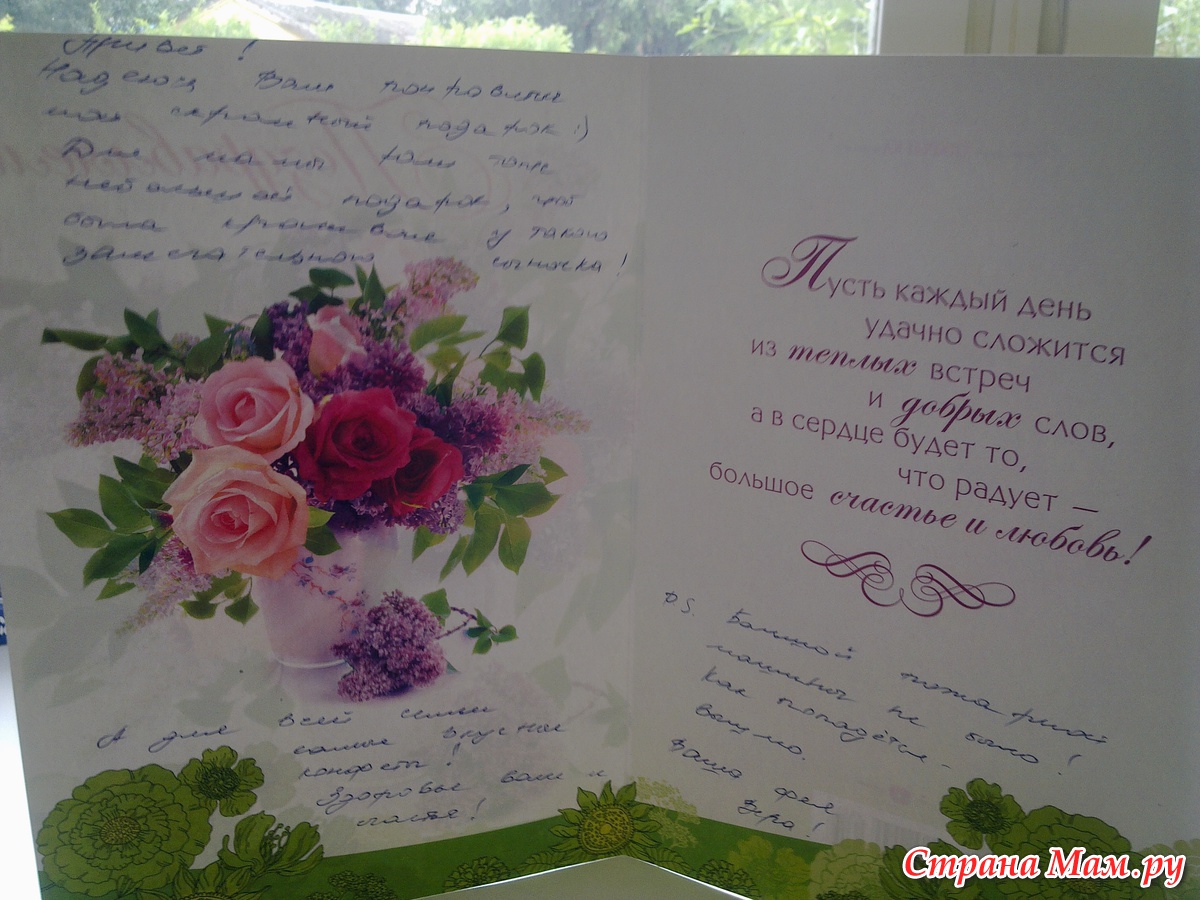 Привет!
Надеюсь Вам понравится
мой скромный подарок :)
Для мамы тоже
небольшой подарок, чтоб
была красивее у такого
замечательного сыночка!
А для всей семьи
самые вкусные
конфеты!
Здоровья вам и
счастья!
Пусть каждый день
удачно сложится
из теплых встреч
и добрых слов,
а в сердце будет то,
что радует —
большое счастье и любовь!
P.S. Большой пожарной
машины не было!
Как попадётся -
вышлю.
Ваша фея
Вера!
Страна Мам.ру